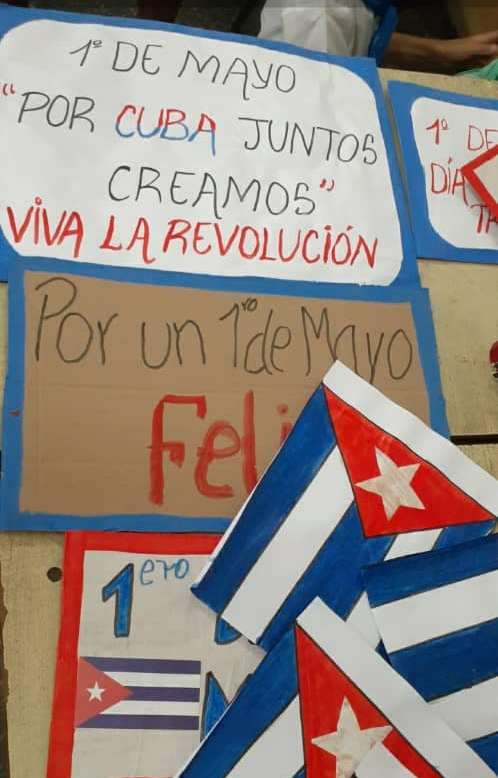 1º DE MAYO
"POR CUBA JUNTOS
CREAMOS"
VIVA LA REVOLUCIÓN
1º DE
DÍA
Por un 1ro de Mayo
Feli
1ero